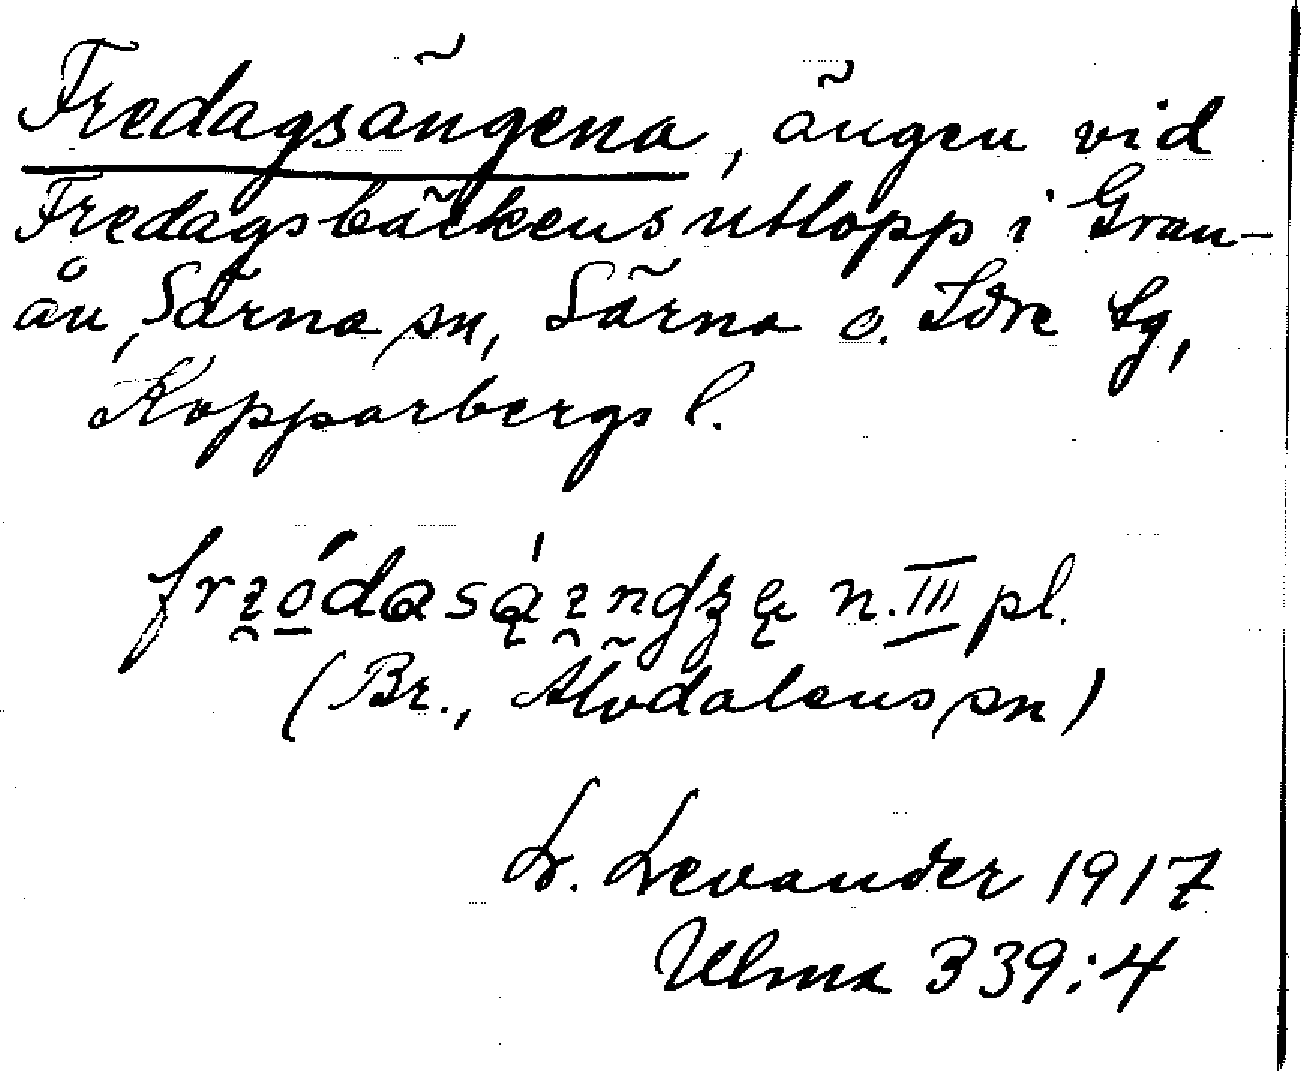 Fredagsängena, ängen vid
Fredagsbäckens utlopp i Gran-
ån, Särna sn, Särna o. Idre lg,
Kopparbergs l.
n. III pl.
(Br., Älvdalens sn)
L. Levander 1917
Ulma 339:4